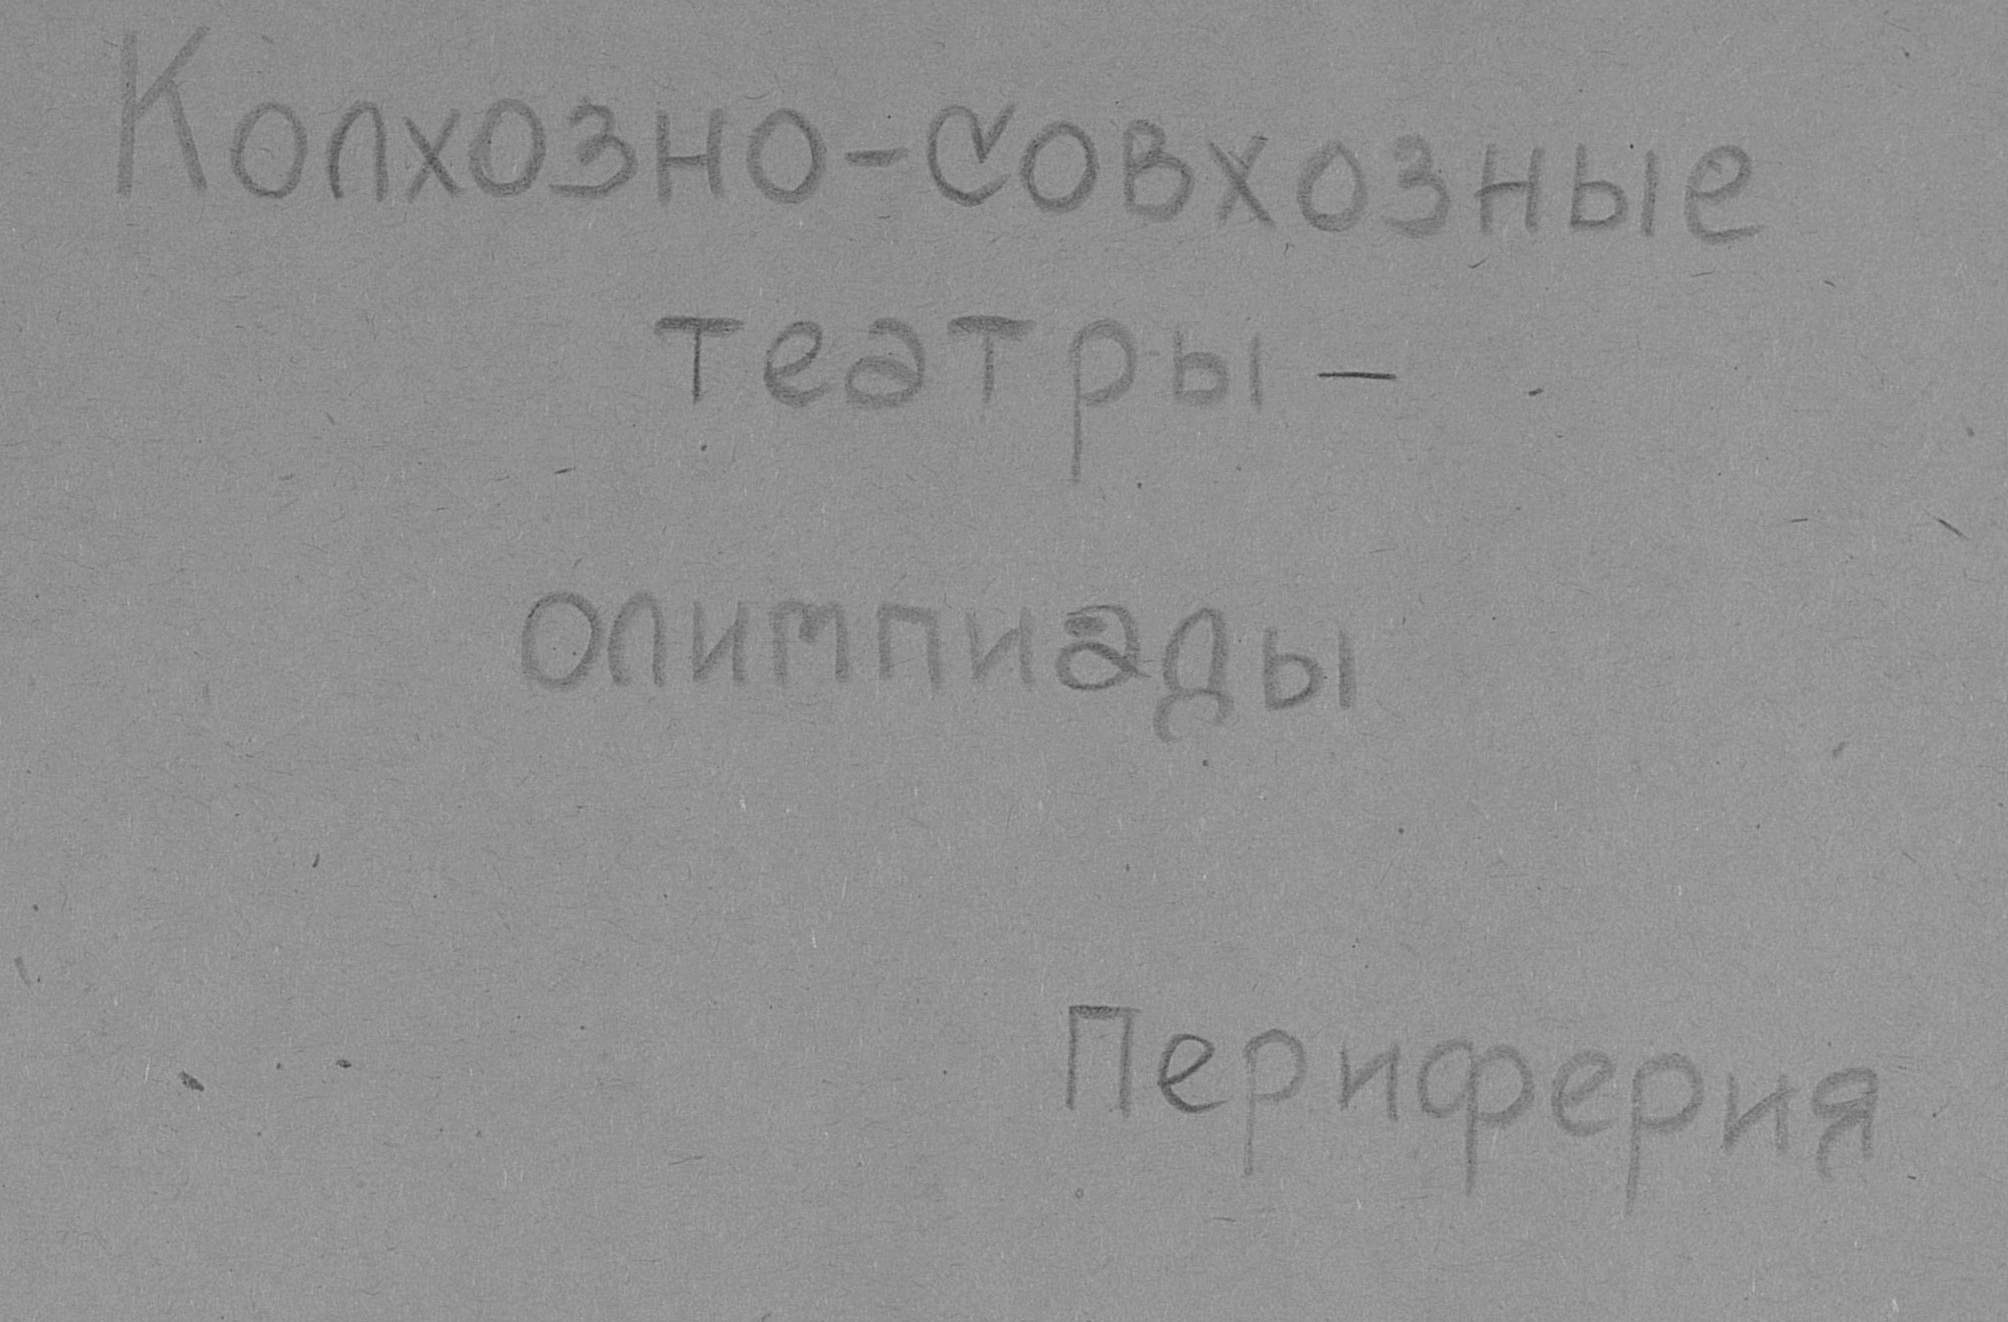 Колхозно-совхозные
театры -
олимпиады
Периферия